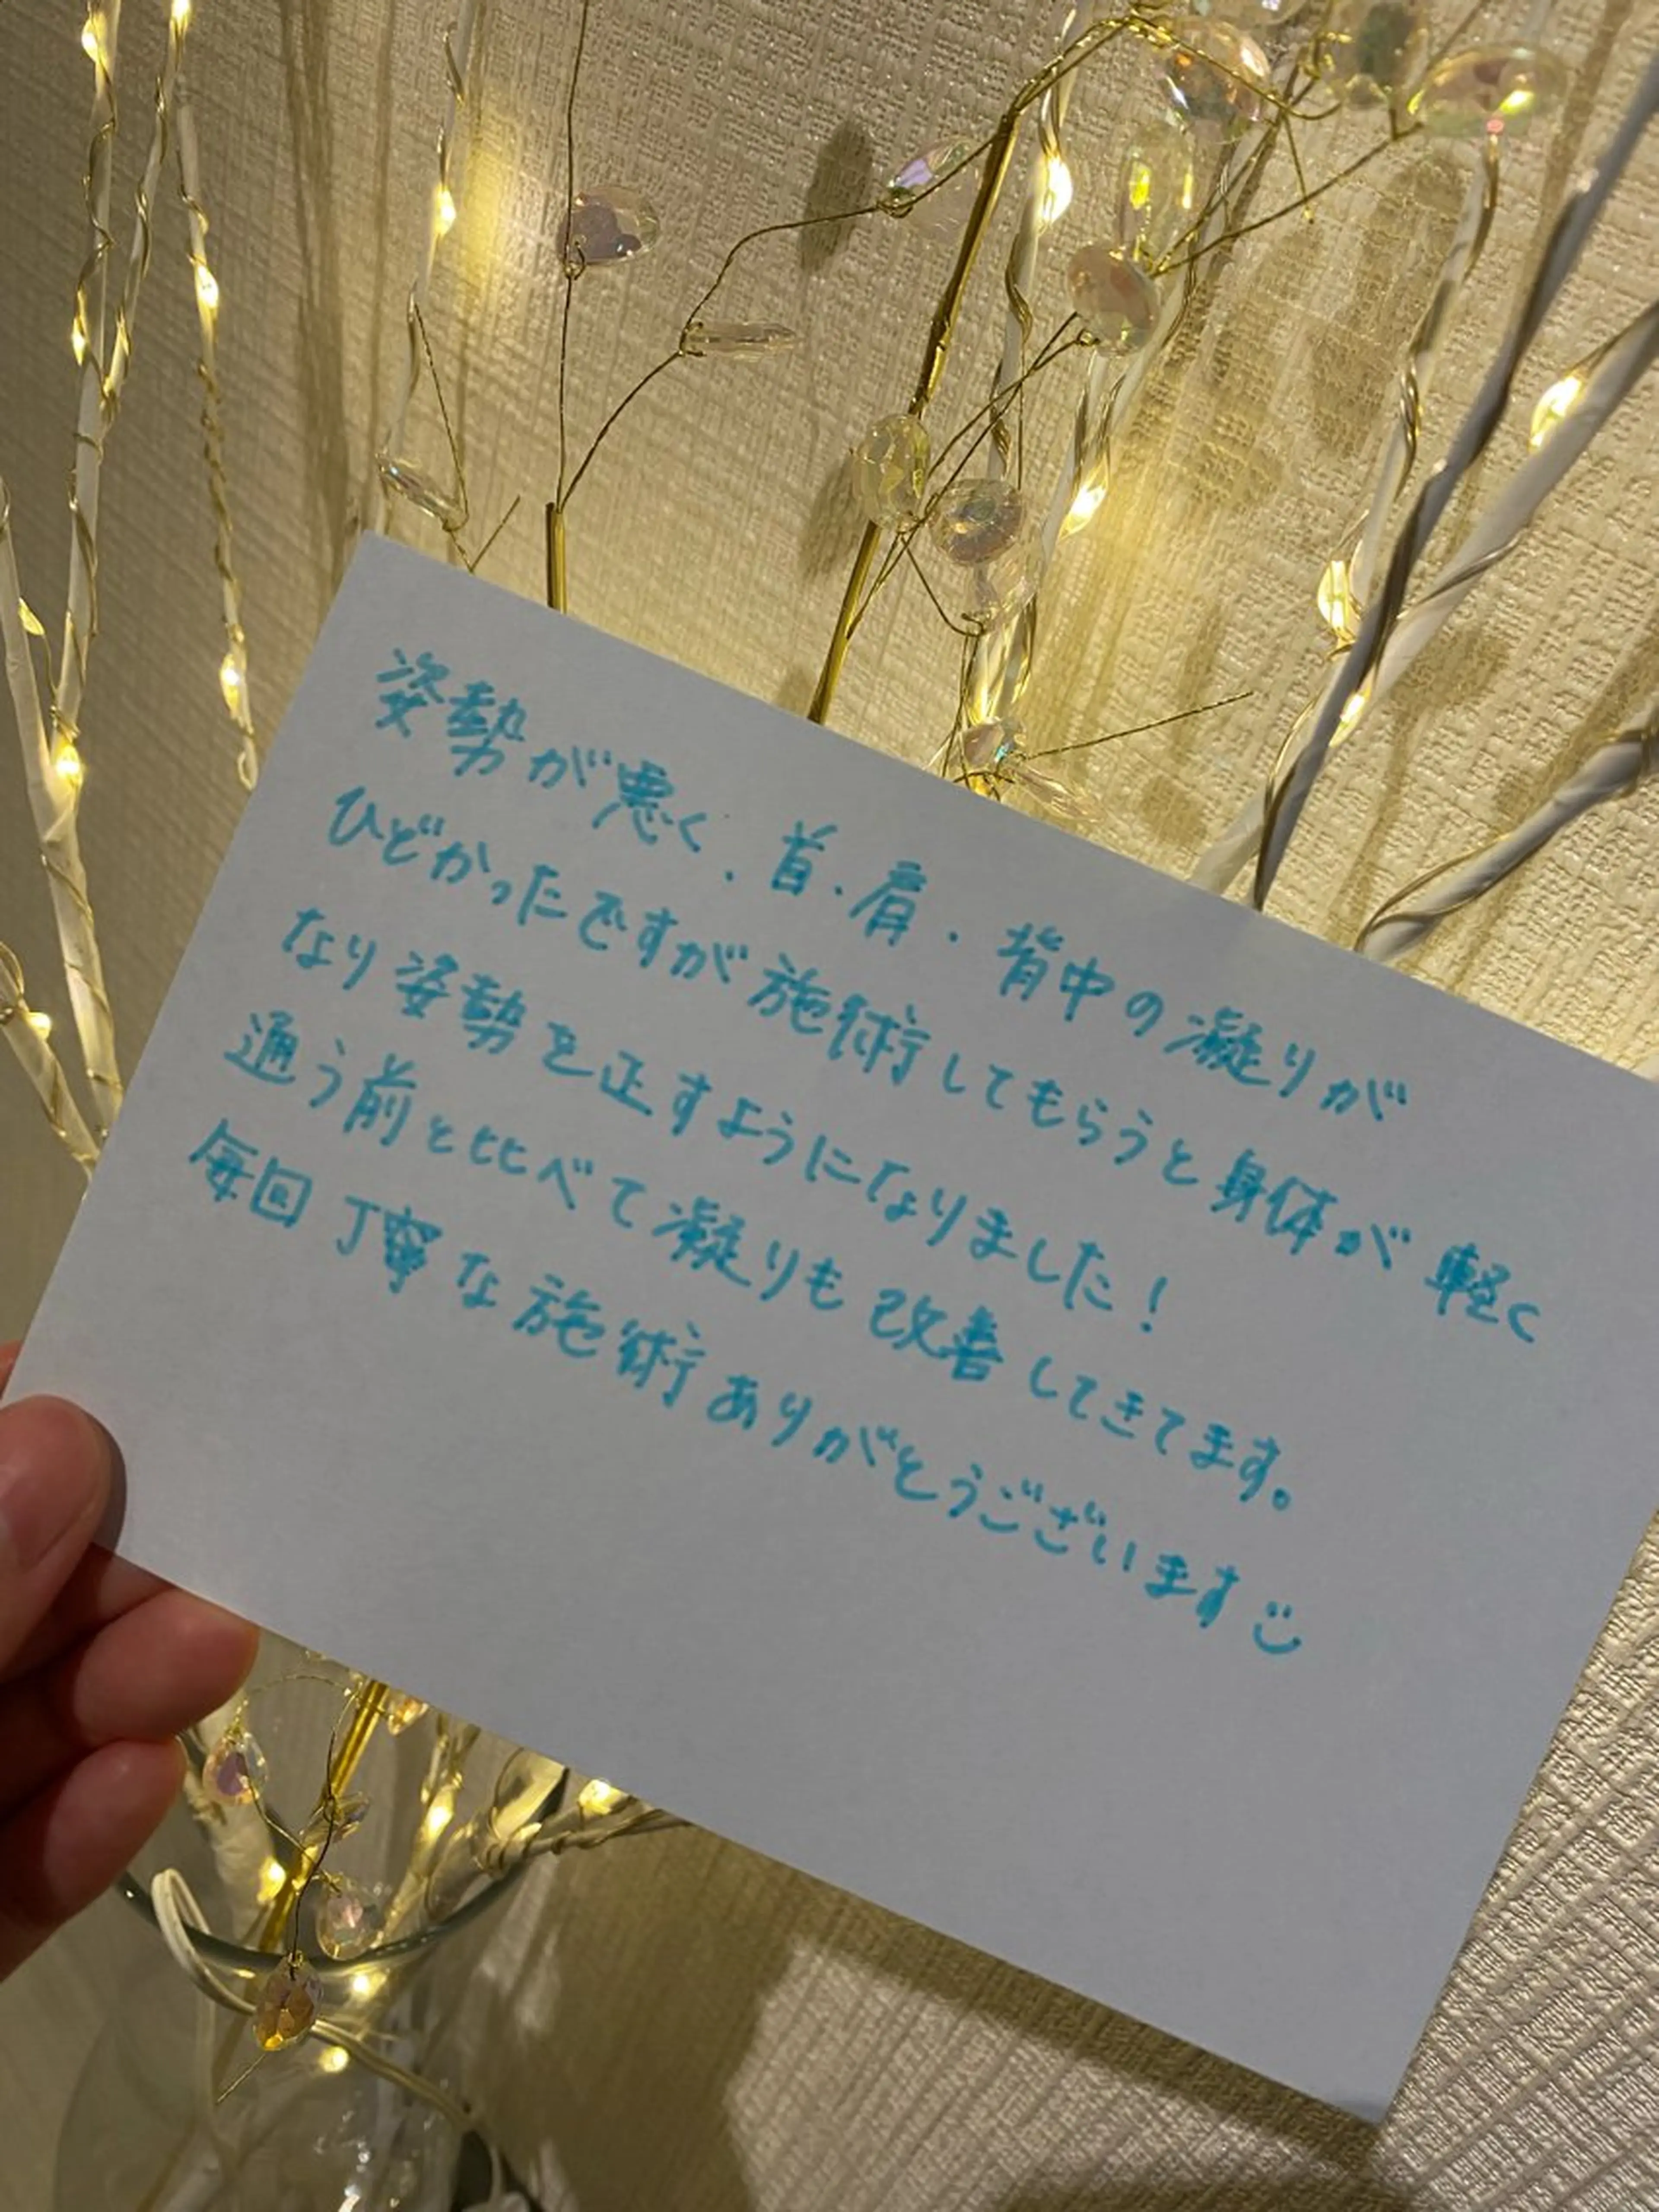 姿勢が悪く、首・肩・背中の凝りが
ひどかったですが施術してもらうと身体が軽く
なり姿勢を正すようになりました!
通う前と比べて凝りも改善してきてます。
毎回丁寧な施術ありがとうございます